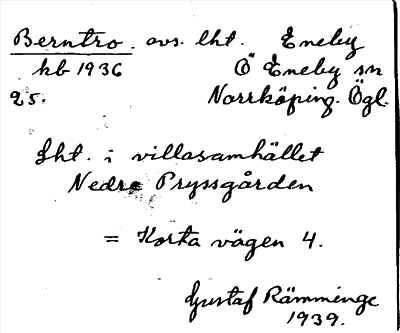 Berntro. avs. lht. Eneby
kb 1936 Ö Eneby sn
25. Norrköping. Ögl.
Lht. i villasamhället
Nedre Pryssgården
= Korta vägen 4.
Gustaf Rämminge
1939.